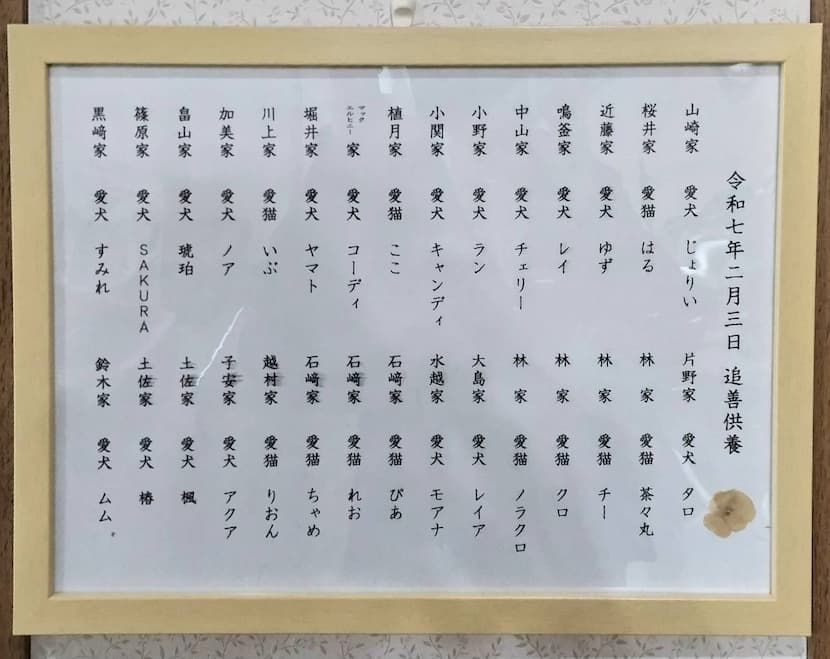 令和七年二月三日 追善供養
山崎家 愛犬 じょりい 片野家 愛犬 タロ
桜井家 愛猫 はる 林家 愛猫 茶々丸
近藤家 愛犬 ゆず 林家 愛猫 チー
鳴釜家 愛犬 レイ 林家 愛猫 クロ
中山家 愛犬 チェリー 林家 愛猫 ノラクロ
小野家 愛犬 ラン 大島家 愛犬 レイア
小関家 愛犬 キャンディ 水越家 愛犬 モアナ
植月家 愛猫 ここ 石﨑家 愛猫 ぴあ
マックエルヒニー家 愛犬 コーディ 石﨑家 愛猫 れお
堀井家 愛犬 ヤマト 石﨑家 愛猫 ちゃめ
川上家 愛猫 いぶ 越村家 愛猫 りおん
加美家 愛犬 ノア 子安家 愛犬 アクア
畠山家 愛犬 琥珀 土佐家 愛猫 楓
篠原家 愛犬 SAKURA 土佐家 愛犬 椿
黒﨑家 愛犬 すみれ 鈴木家 愛犬 ムム